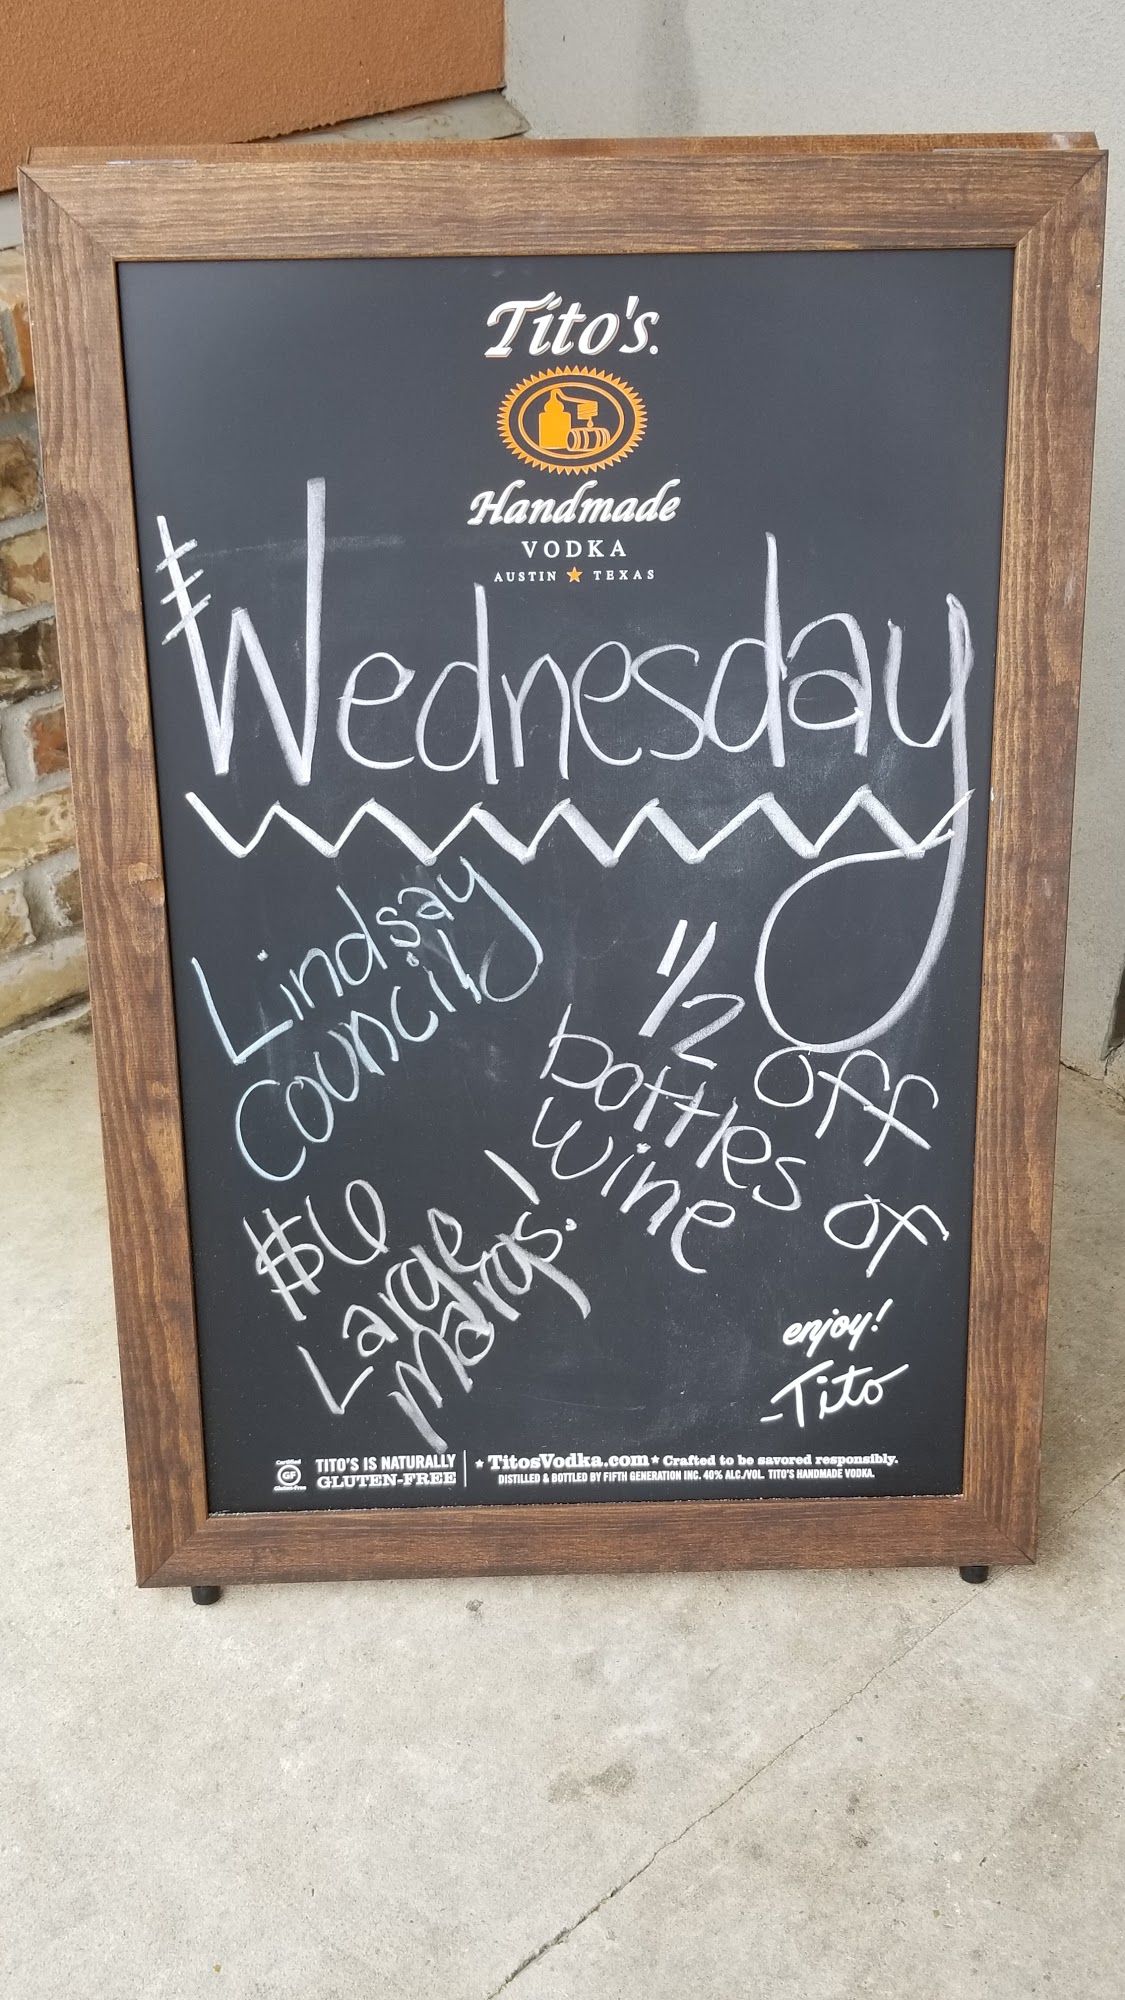 Tito's.
Handmade
VODKA
AUSTIN ★ TEXAS
Wednesday
Lindsay
Council
$6
Large
Margs!
1/2 off
bottles of
wine
enjoy!
-Tito
Certified
GF
Gluten-Free
TITO'S IS NATURALLY
GLUTEN-FREE
★ TitosVodka.com ★ Crafted to be savored responsibly.
DISTILLED & BOTTLED BY FIFTH GENERATION INC. 40% ALC./VOL. TITO'S HANDMADE VODKA.